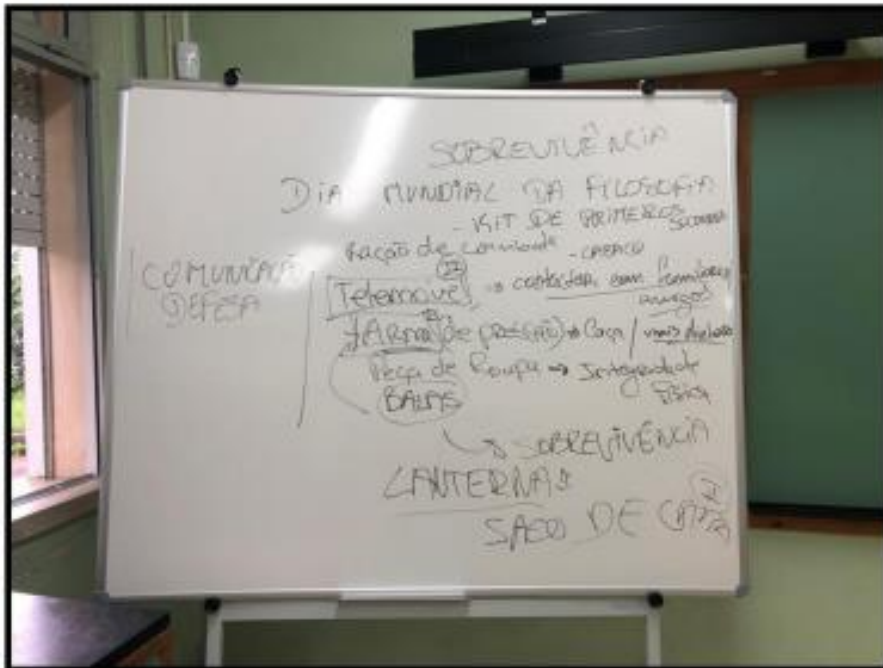 SOBREVIVÊNCIA
DIA MUNDIAL DA FILOSOFIA
- KIT DE PRIMEIROS
Ração de
- CASACO
COMUNICAÇÃO
DEFESA
Telemóvel → contactar com familiares
amigos
ARMA (de pressão) → Caça /
Peça de Roupa → Integridade
física
BALAS
→ SOBREVIVÊNCIA
LANTERNAS
SACO DE